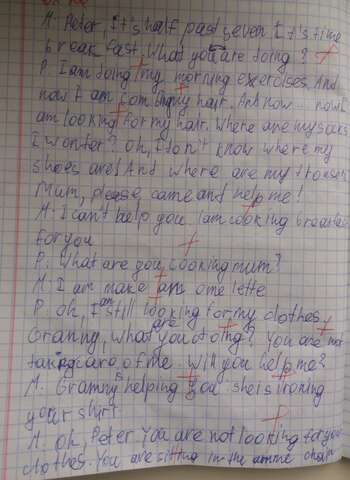 M. Peter, It's half past seven! It's time
breakfast. What you are doing?
P. I am doing my morning exercises. And
now I am combing my hair. And now... now I
am looking for my hair. Where are my socks
I wonder? Oh, I don't know where my
shoes are! And where are my trousers
Mum, please, came and help me!
M: I can't help you I am cooking breakfast
for you
P: What are you cooking mum?
M: I am make an omelette
P: Oh, I am still looking for my clothes
Granny, what are you doing? You are not
taking care of me. Will you help me?
M. Granny's helping you she is ironing
your shirt.
M. Oh, Peter You are not looking for your
clothes. You are sitting in the chair